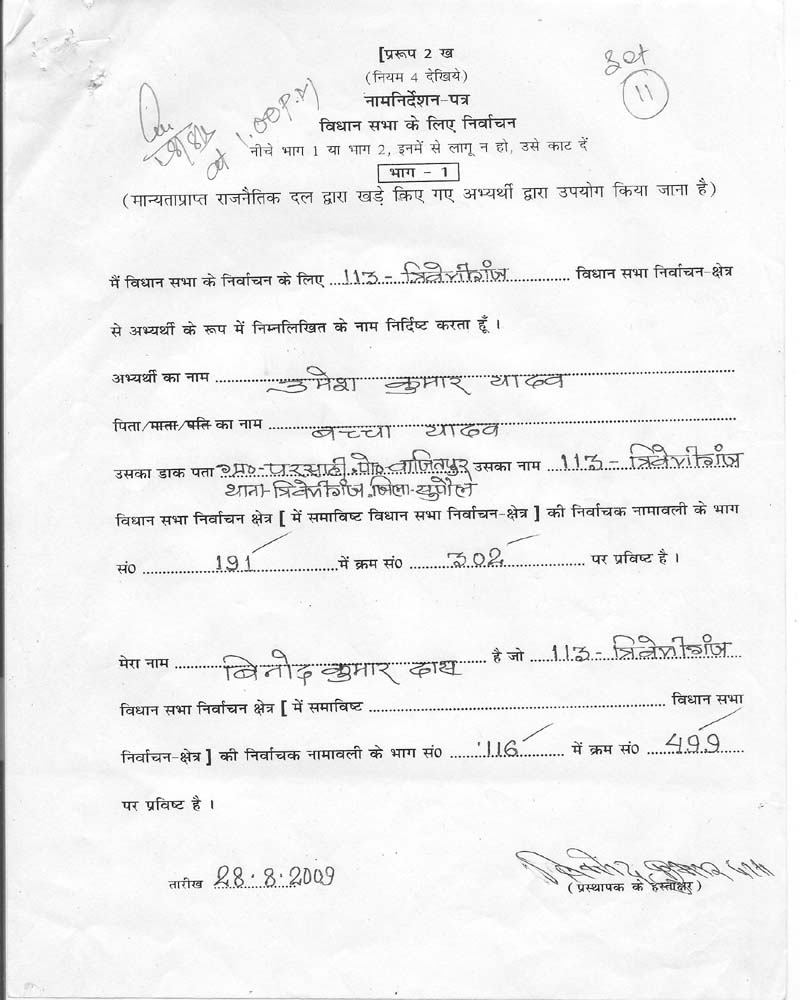 [प्ररूप 2 ख
(नियम 4 देखिये)
नामनिर्देशन-पत्र
विधान सभा के लिए निर्वाचन
11
at 1.00 P.M
नीचे भाग 1 या भाग 2, इनमें से लागू न हो, उसे काट दें
भाग - 1
(मान्यताप्राप्त राजनैतिक दल द्वारा खड़े किए गए अभ्यर्थी द्वारा उपयोग किया जाना है)
मैं विधान सभा के निर्वाचन के लिए 113 - त्रिवेणीगंज विधान सभा निर्वाचन-क्षेत्र
से अभ्यर्थी के रूप में निम्नलिखित के नाम निर्दिष्ट करता हूँ ।
अभ्यर्थी का नाम उमेश कुमार यादव
पिता/माता/पति का नाम बच्चा यादव
उसका डाक पता ग्रा०-परसाही, पो० वाजितपुर उसका नाम 113 - त्रिवेणीगंज
थाना-त्रिवेणीगंज, जिला-सुपौल
विधान सभा निर्वाचन क्षेत्र [ में समाविष्ट विधान सभा निर्वाचन-क्षेत्र ] की निर्वाचक नामावली के भाग
सं0 191 में क्रम सं0 302 पर प्रविष्ट है ।
मेरा नाम बिनोद कुमार दास है जो 113 - त्रिवेणीगंज
विधान सभा निर्वाचन क्षेत्र [ में समाविष्ट विधान सभा
निर्वाचन-क्षेत्र ] की निर्वाचक नामावली के भाग सं0 116 में क्रम सं0 499
पर प्रविष्ट है ।
तारीख 28.8.2009
बिनोद कुमार दास
(प्रस्थापक के हस्ताक्षर)